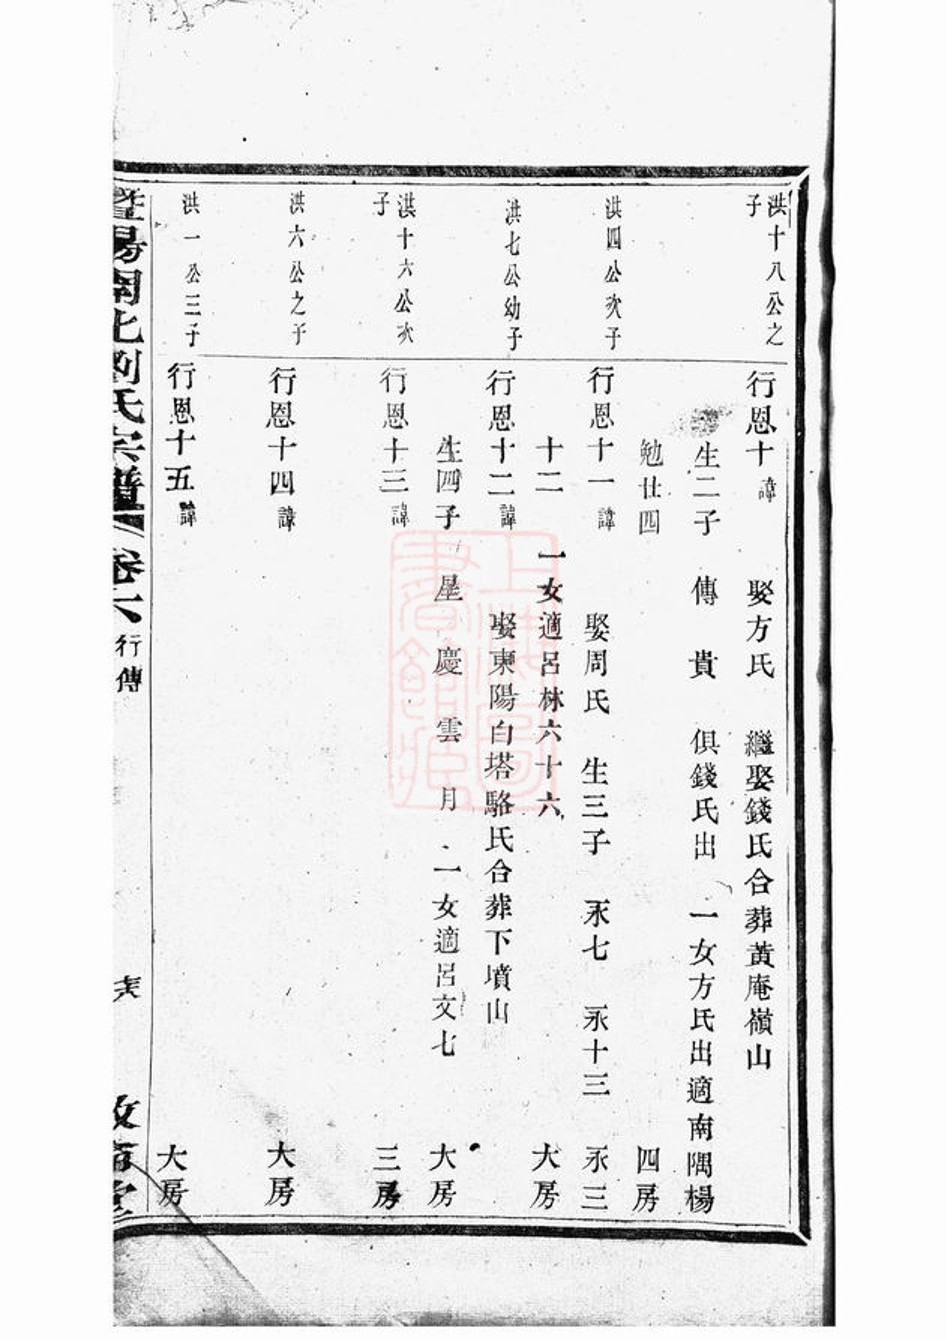 洪十八公之
子
行恩十諱 娶方氏 繼娶錢氏合葬黃庵嶺山
生二子 傳 貴 俱錢氏出 一女方氏出適南隅楊
勉仕四 四房
洪四公次子
行恩十一諱 娶周氏 生三子 永七 永十三 永三
十二 一女適呂林六十六 大房
洪七公幼子
行恩十二諱 娶東陽白塔駱氏合葬下墳山
生四子 星 慶 雲 月 一女適呂文七 大房
洪十六公次
子
行恩十三諱 三房
洪六公之子
行恩十四諱 大房
洪一公三子
行恩十五諱 大房
暨陽開化劉氏宗譜 卷六 行傳